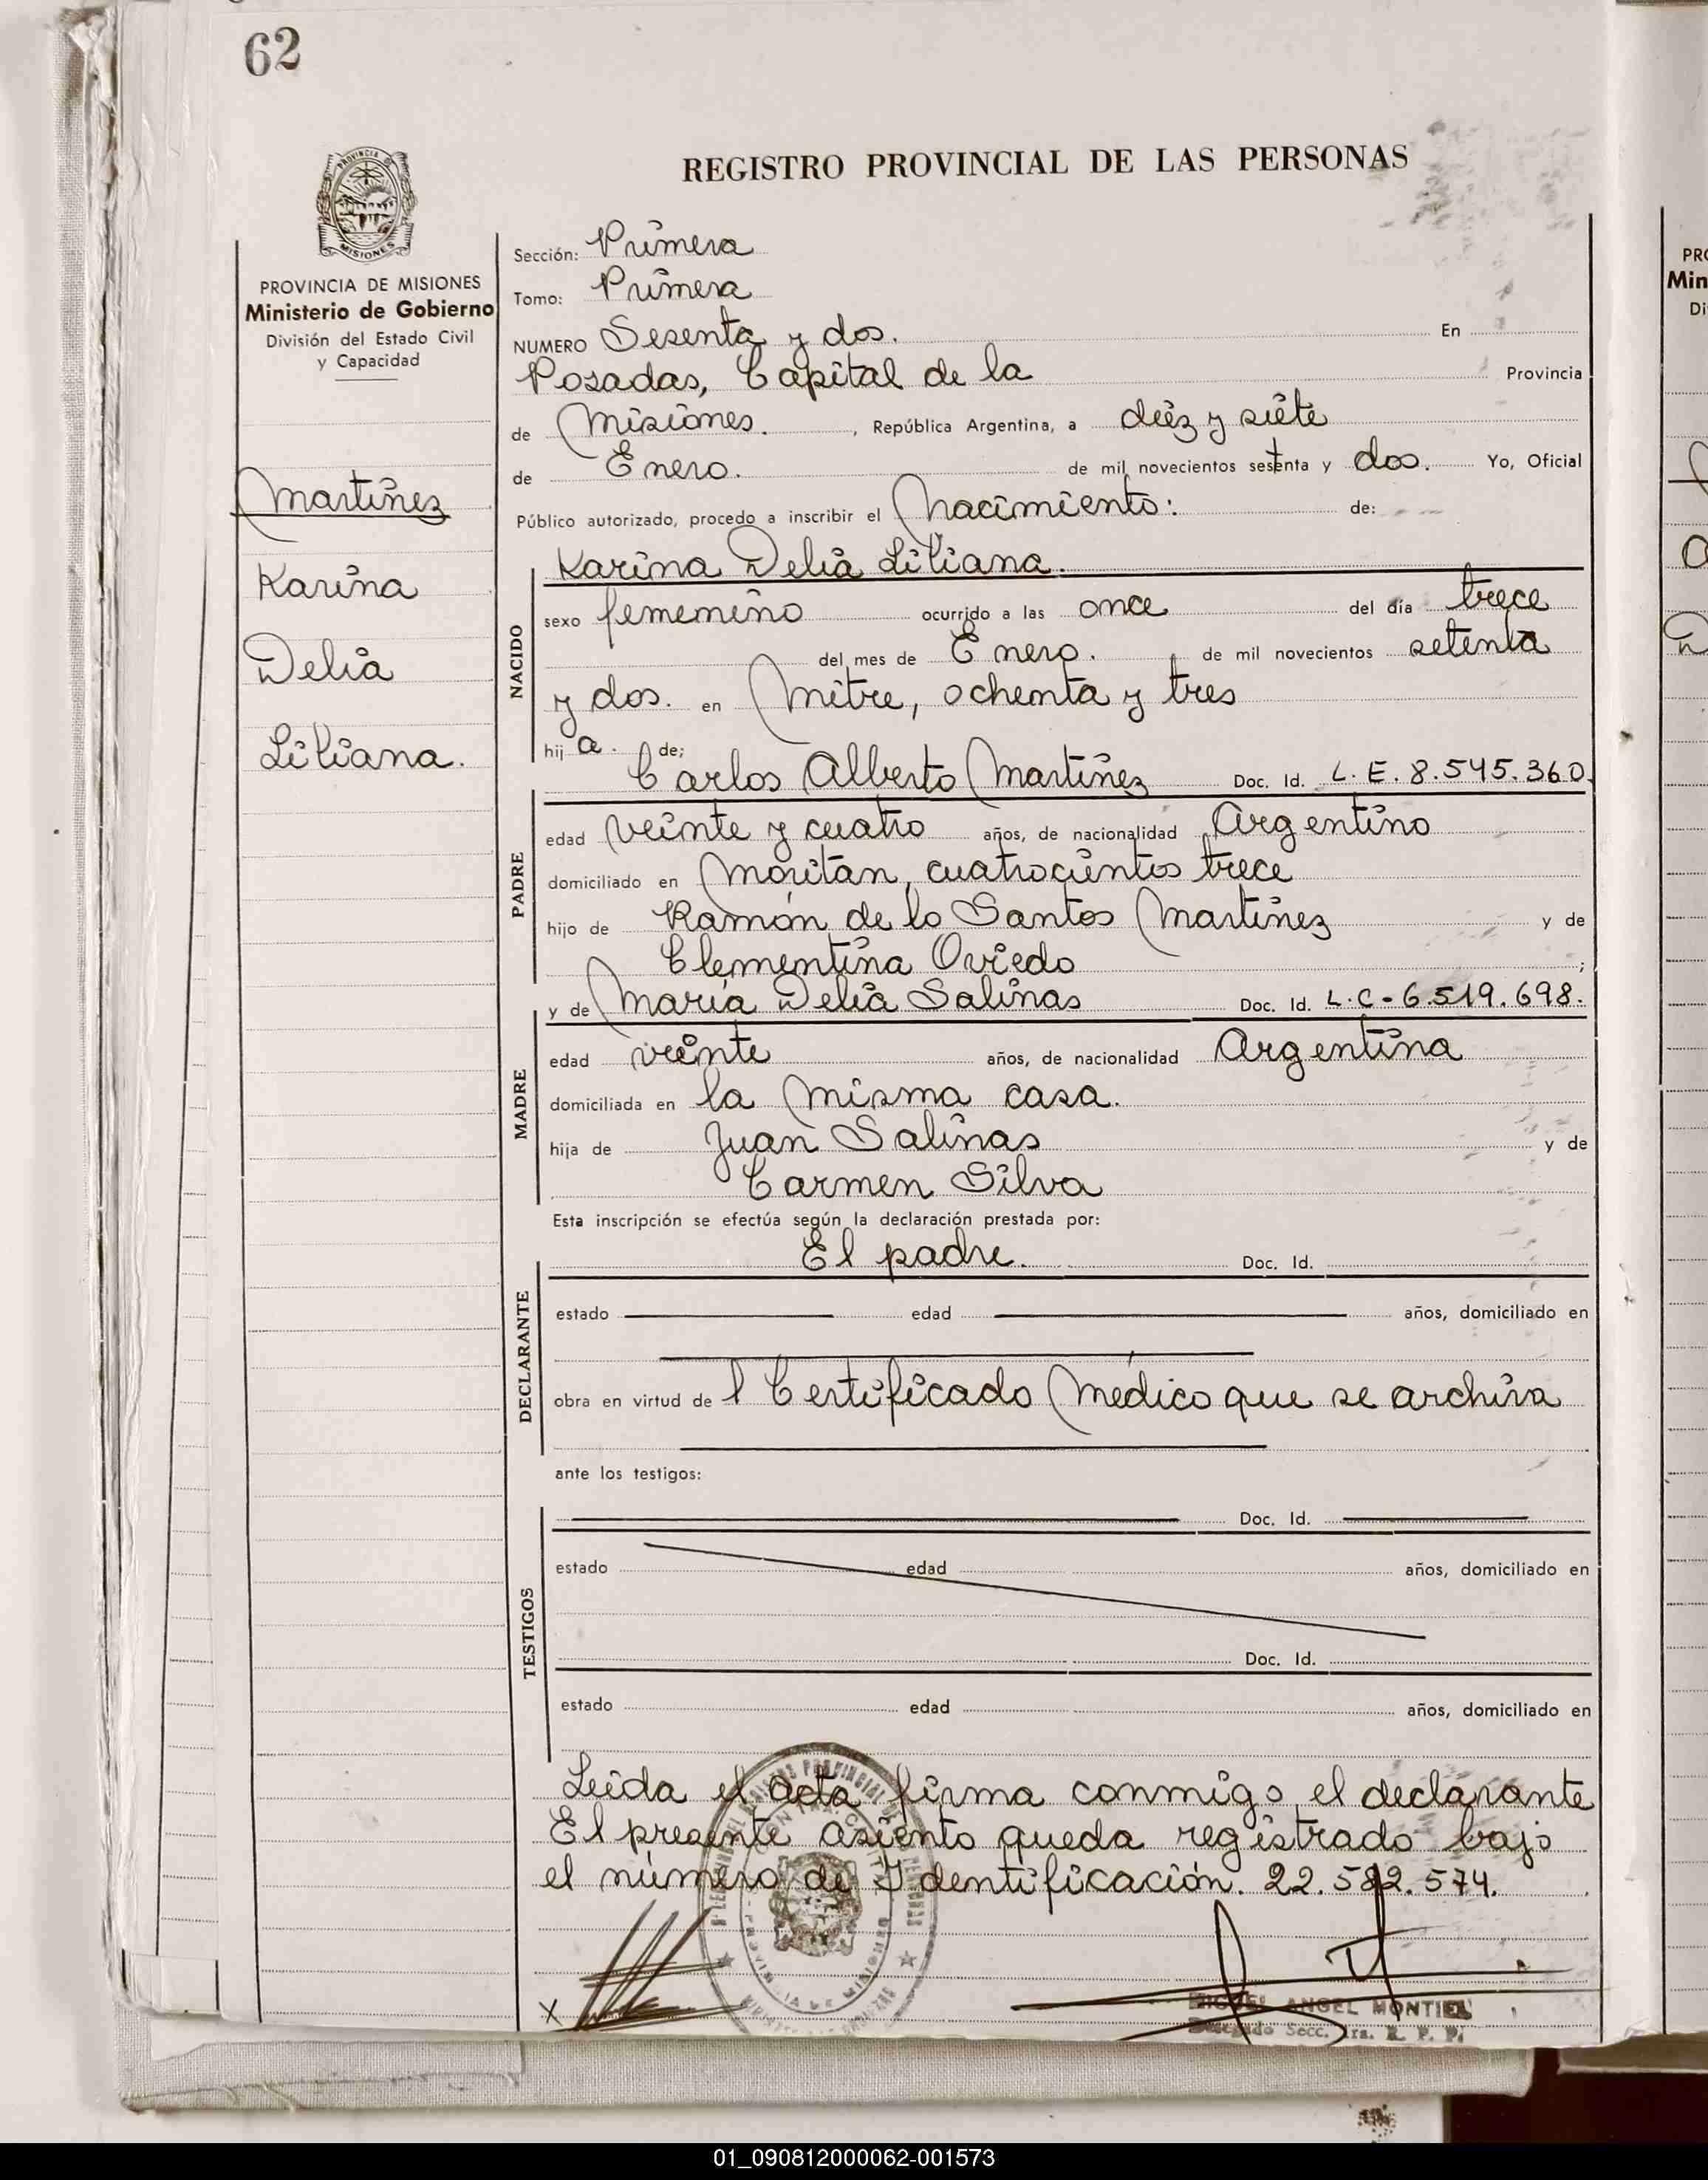 62
REGISTRO PROVINCIAL DE LAS PERSONAS
PROVINCIA
MISIONES
PROVINCIA DE MISIONES
Ministerio de Gobierno
División del Estado Civil
y Capacidad
Martinez
Karina
Delia
Liliana.
Sección: Primera
Tomo: Primera
NUMERO Sesenta y dos. En
Posadas, Capital de la Provincia
de Misiones. , República Argentina, a diez y siete
de Enero. de mil novecientos setenta y dos. Yo, Oficial
Público autorizado, procedo a inscribir el Nacimiento: de:
NACIDO
Karina Delia Liliana.
sexo femenino ocurrido a las once del día trece
del mes de Enero. de mil novecientos setenta
y dos. en Mitre, ochenta y tres
hij a. de;
Carlos Alberto Martinez Doc. Id. L. E. 8.545.360.
PADRE
edad veinte y cuatro años, de nacionalidad Argentino
domiciliado en Moritan, cuatrocientos trece
hijo de Ramón de lo Santos Martinez y de
Clementina Oviedo ;
y de María Delia Salinas Doc. Id. L.C-6.519.698.
MADRE
edad veinte años, de nacionalidad Argentina
domiciliada en la misma casa.
hija de Juan Salinas y de
Carmen Silva
Esta inscripción se efectúa según la declaración prestada por:
DECLARANTE
El padre. Doc. Id.
estado edad años, domiciliado en
obra en virtud de l Certificado Médico que se archiva
ante los testigos:
TESTIGOS
Doc. Id.
estado edad años, domiciliado en
Doc. Id.
estado edad años, domiciliado en
Leida el acta firma conmigo el declarante
El presente asiento queda registrado bajo
el número de Identificación. 22.582.574.
X
MIGUEL ANGEL MONTIEL
Delegado Secc. 1ra. R. P. P.
PRO
Min
Di
01_090812000062-001573